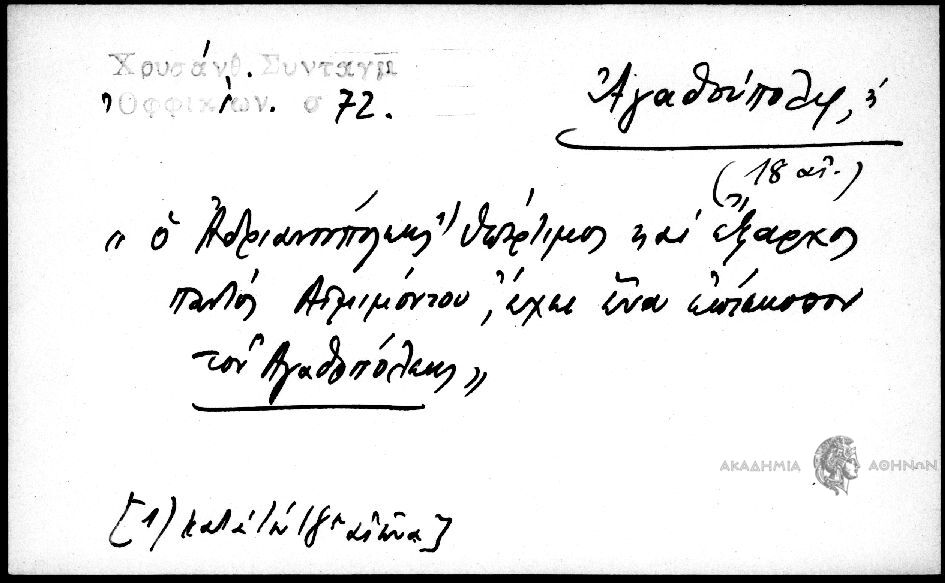 Χρυσάνθ. Συνταγμ
Ὀφφικίων. σ 72.
Ἀγαθούπολις, ἡ
(18 αἰ.)
« ὁ Ἀδριανουπόλεως 1) ὑπέρτιμος καὶ ἔξαρχος
παντὸς Αἱμιμόντου, ἔχει ἕνα ἐπίσκοπον
τὸν Ἀγαθοπόλεως »
[1) κατὰ τὸν 18ον αἰῶνα]
ΑΚΑΔΗΜΙΑ ΑΘΗΝΩΝ